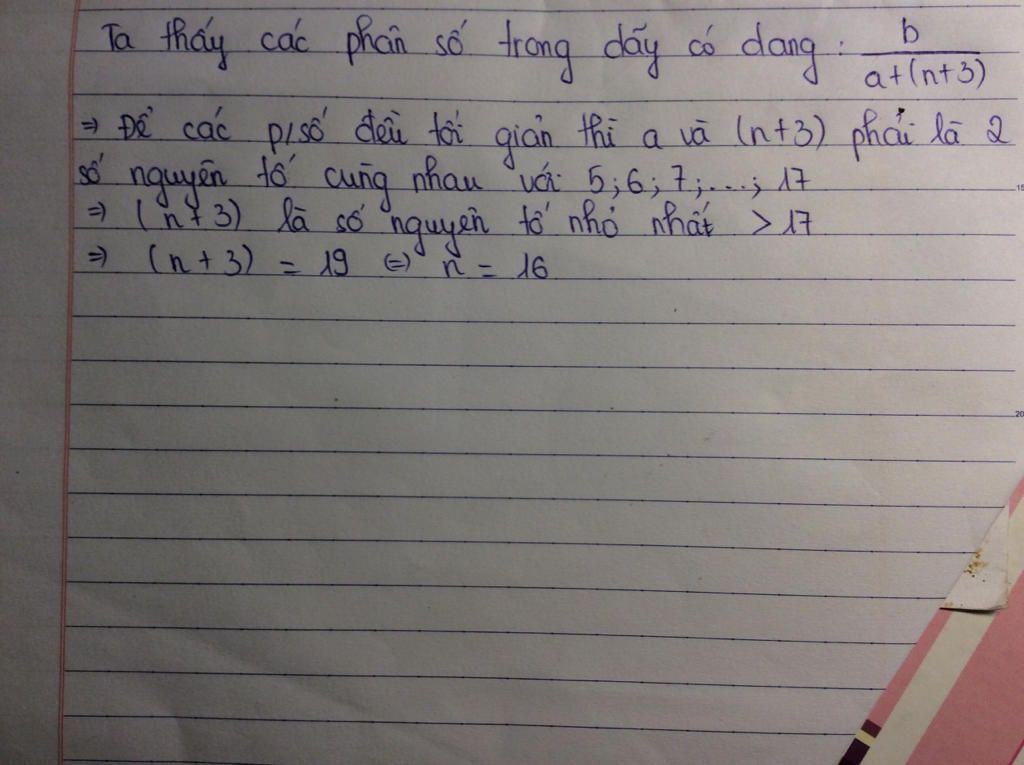 Ta thấy các phân số trong dãy có dang : b/(a+(n+3))
⇒ Để các p/số đều tối giản thì a và (n+3) phải là 2
số nguyên tố cùng nhau với 5;6;7;...; 17
⇒ (n+3) là số nguyên tố nhỏ nhất > 17
⇒ (n + 3) = 19 ⇔ n = 16
15
20